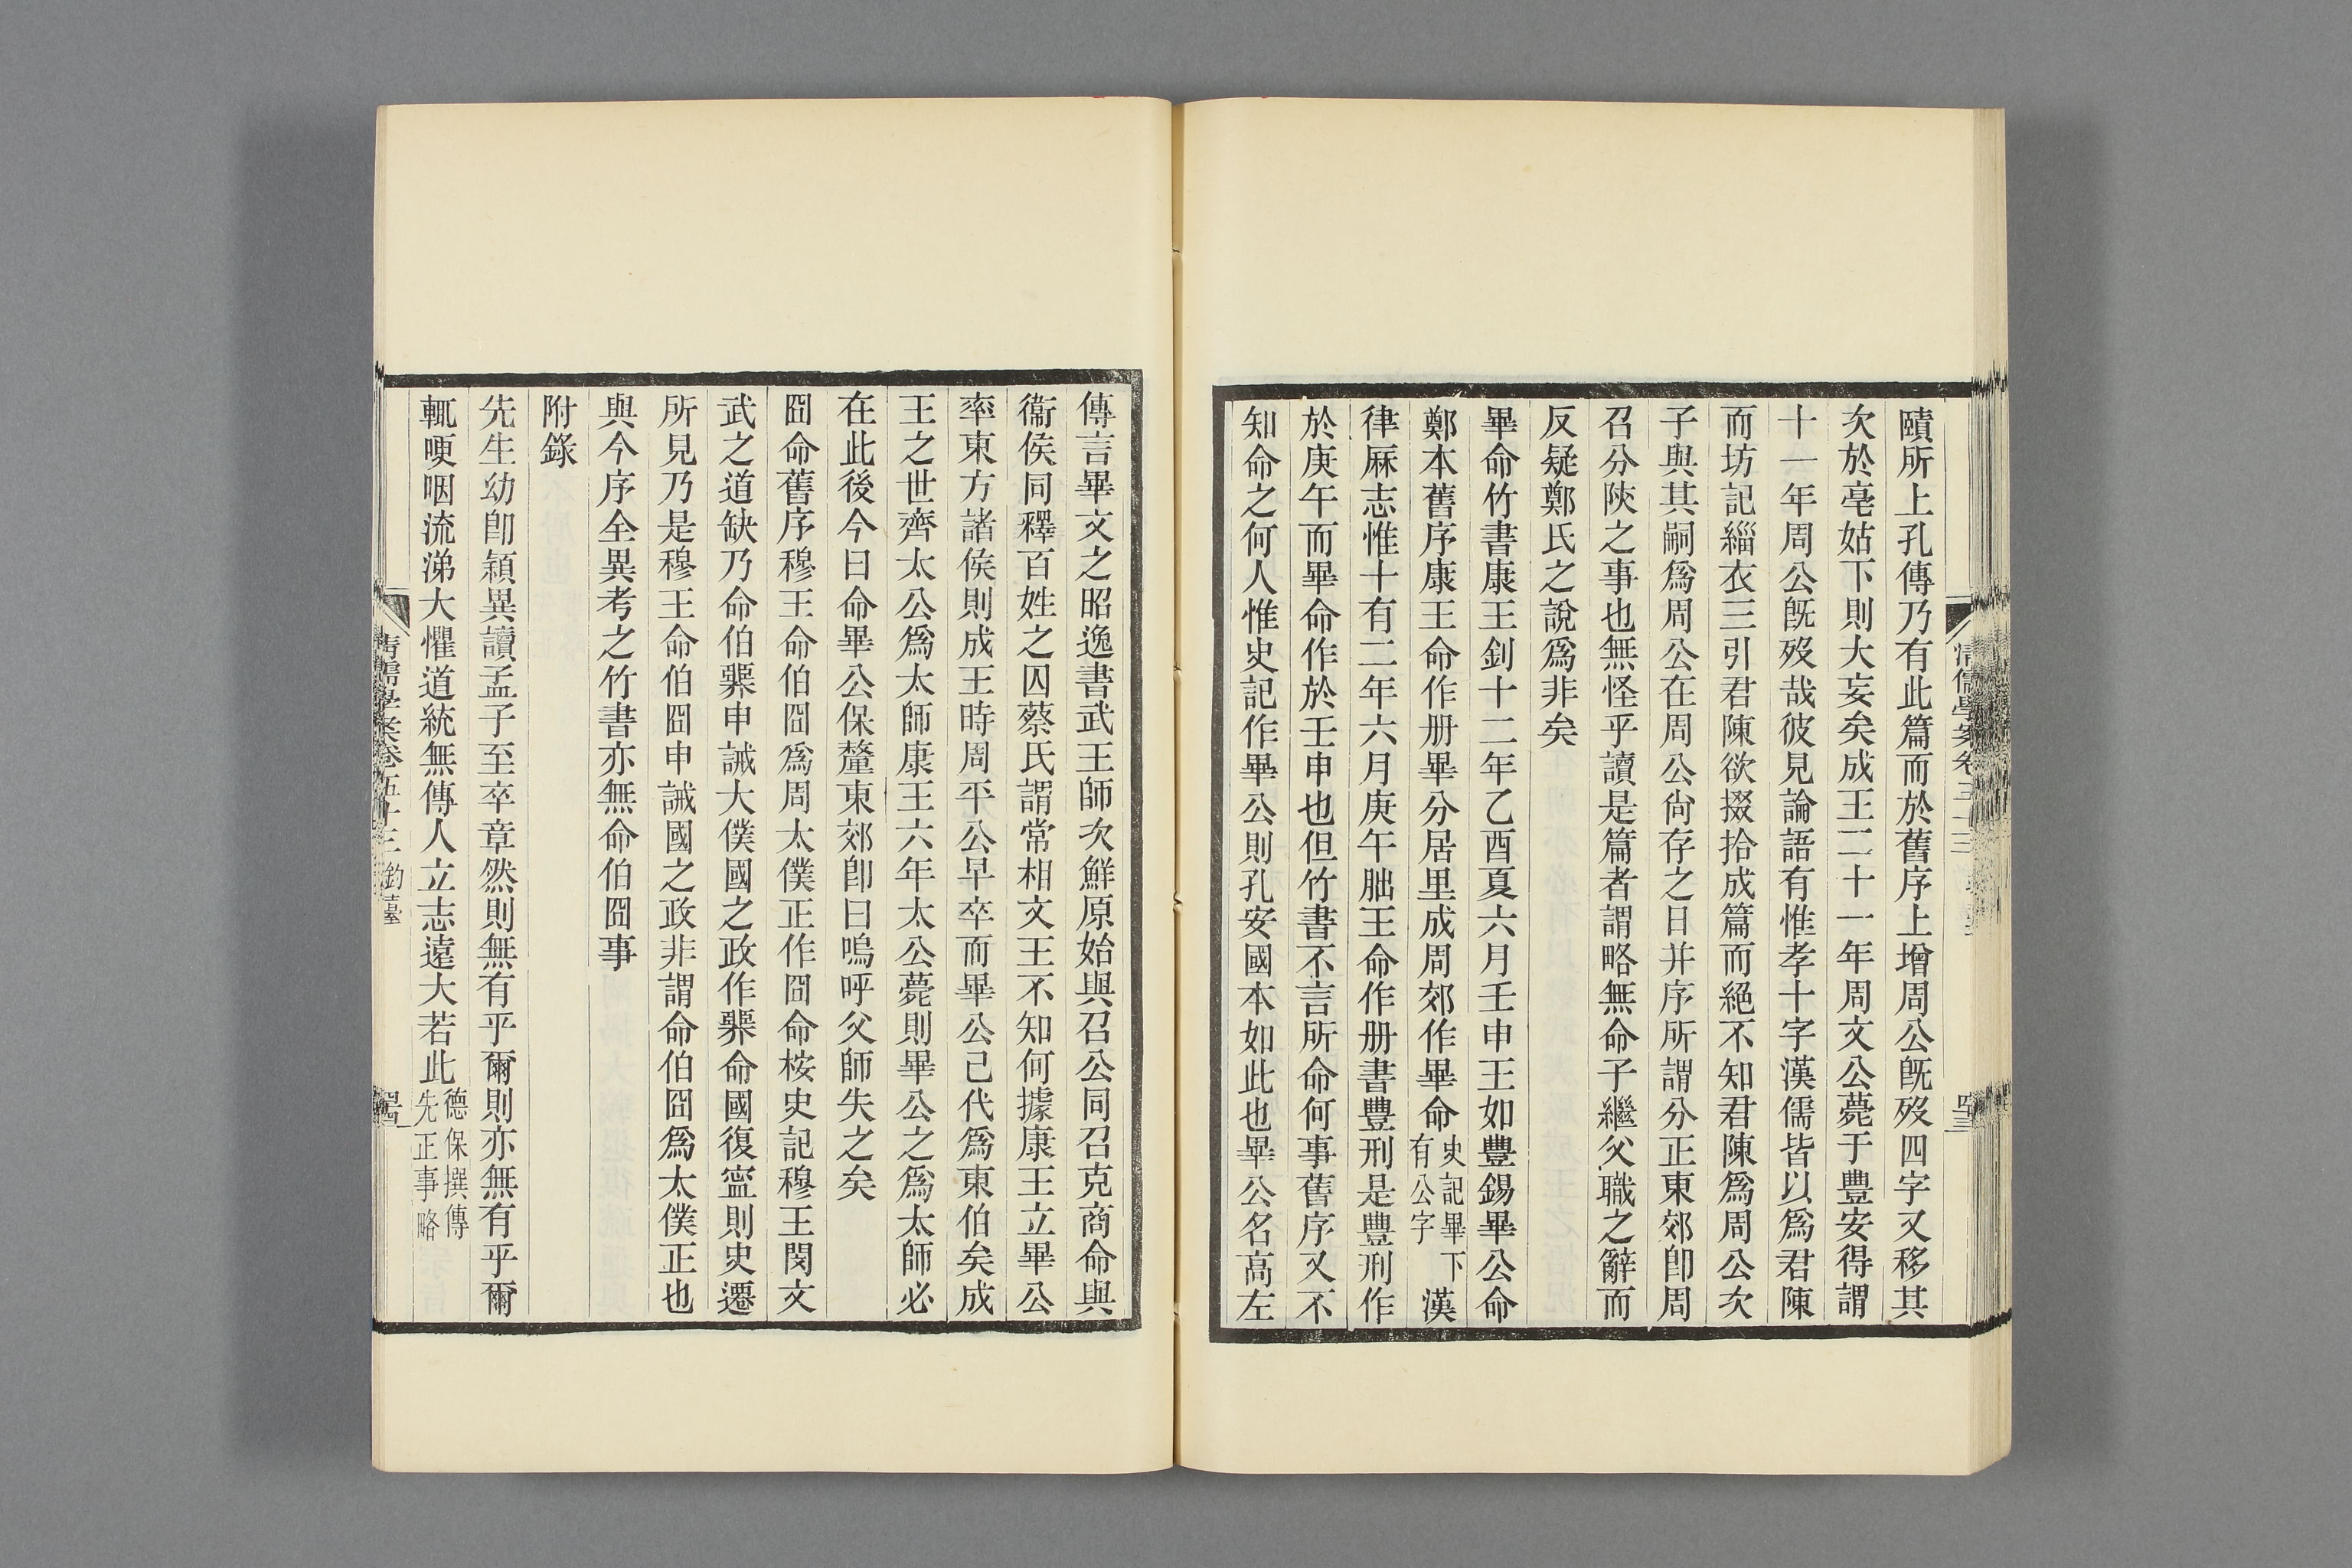 賾所上孔傳乃有此篇而於舊序上增周公旣歿四字又移其
次於亳姑下則大妄矣成王二十一年周文公薨于豐安得謂
十一年周公旣歿哉彼見論語有惟孝十字漢儒皆以爲君陳
而坊記緇衣三引君陳欲掇拾成篇而絕不知君陳爲周公次
子與其嗣爲周公在周公尙存之日并序所謂分正東郊卽周
召分陜之事也無怪乎讀是篇者謂略無命子繼父職之辭而
反疑鄭氏之說爲非矣
畢命竹書康王釗十二年乙酉夏六月壬申王如豐錫畢公命
鄭本舊序康王命作册畢分居里成周郊作畢命史記畢下有公字漢
律厤志惟十有二年六月庚午朏王命作册書豐刑是豐刑作
於庚午而畢命作於壬申也但竹書不言所命何事舊序又不
知命之何人惟史記作畢公則孔安國本如此也畢公名高左
傳言畢文之昭逸書武王師次鮮原始與召公同召克商命與
衞侯同釋百姓之囚蔡氏謂常相文王不知何據康王立畢公
率東方諸侯則成王時周平公早卒而畢公已代爲東伯矣成
王之世齊太公爲太師康王六年太公薨則畢公之爲太師必
在此後今曰命畢公保釐東郊卽曰嗚呼父師失之矣
囧命舊序穆王命伯囧爲周太僕正作囧命桉史記穆王閔文
武之道缺乃命伯臩申誡大僕國之政作臩命國復寍則史遷
所見乃是穆王命伯囧申誡國之政非謂命伯囧爲太僕正也
與今序全異考之竹書亦無命伯囧事
附錄
先生幼卽穎異讀孟子至卒章然則無有乎爾則亦無有乎爾
輒哽咽流涕大懼道統無傳人立志遠大若此德保撰傳先正事略
清儒學案卷五十三 鈞臺